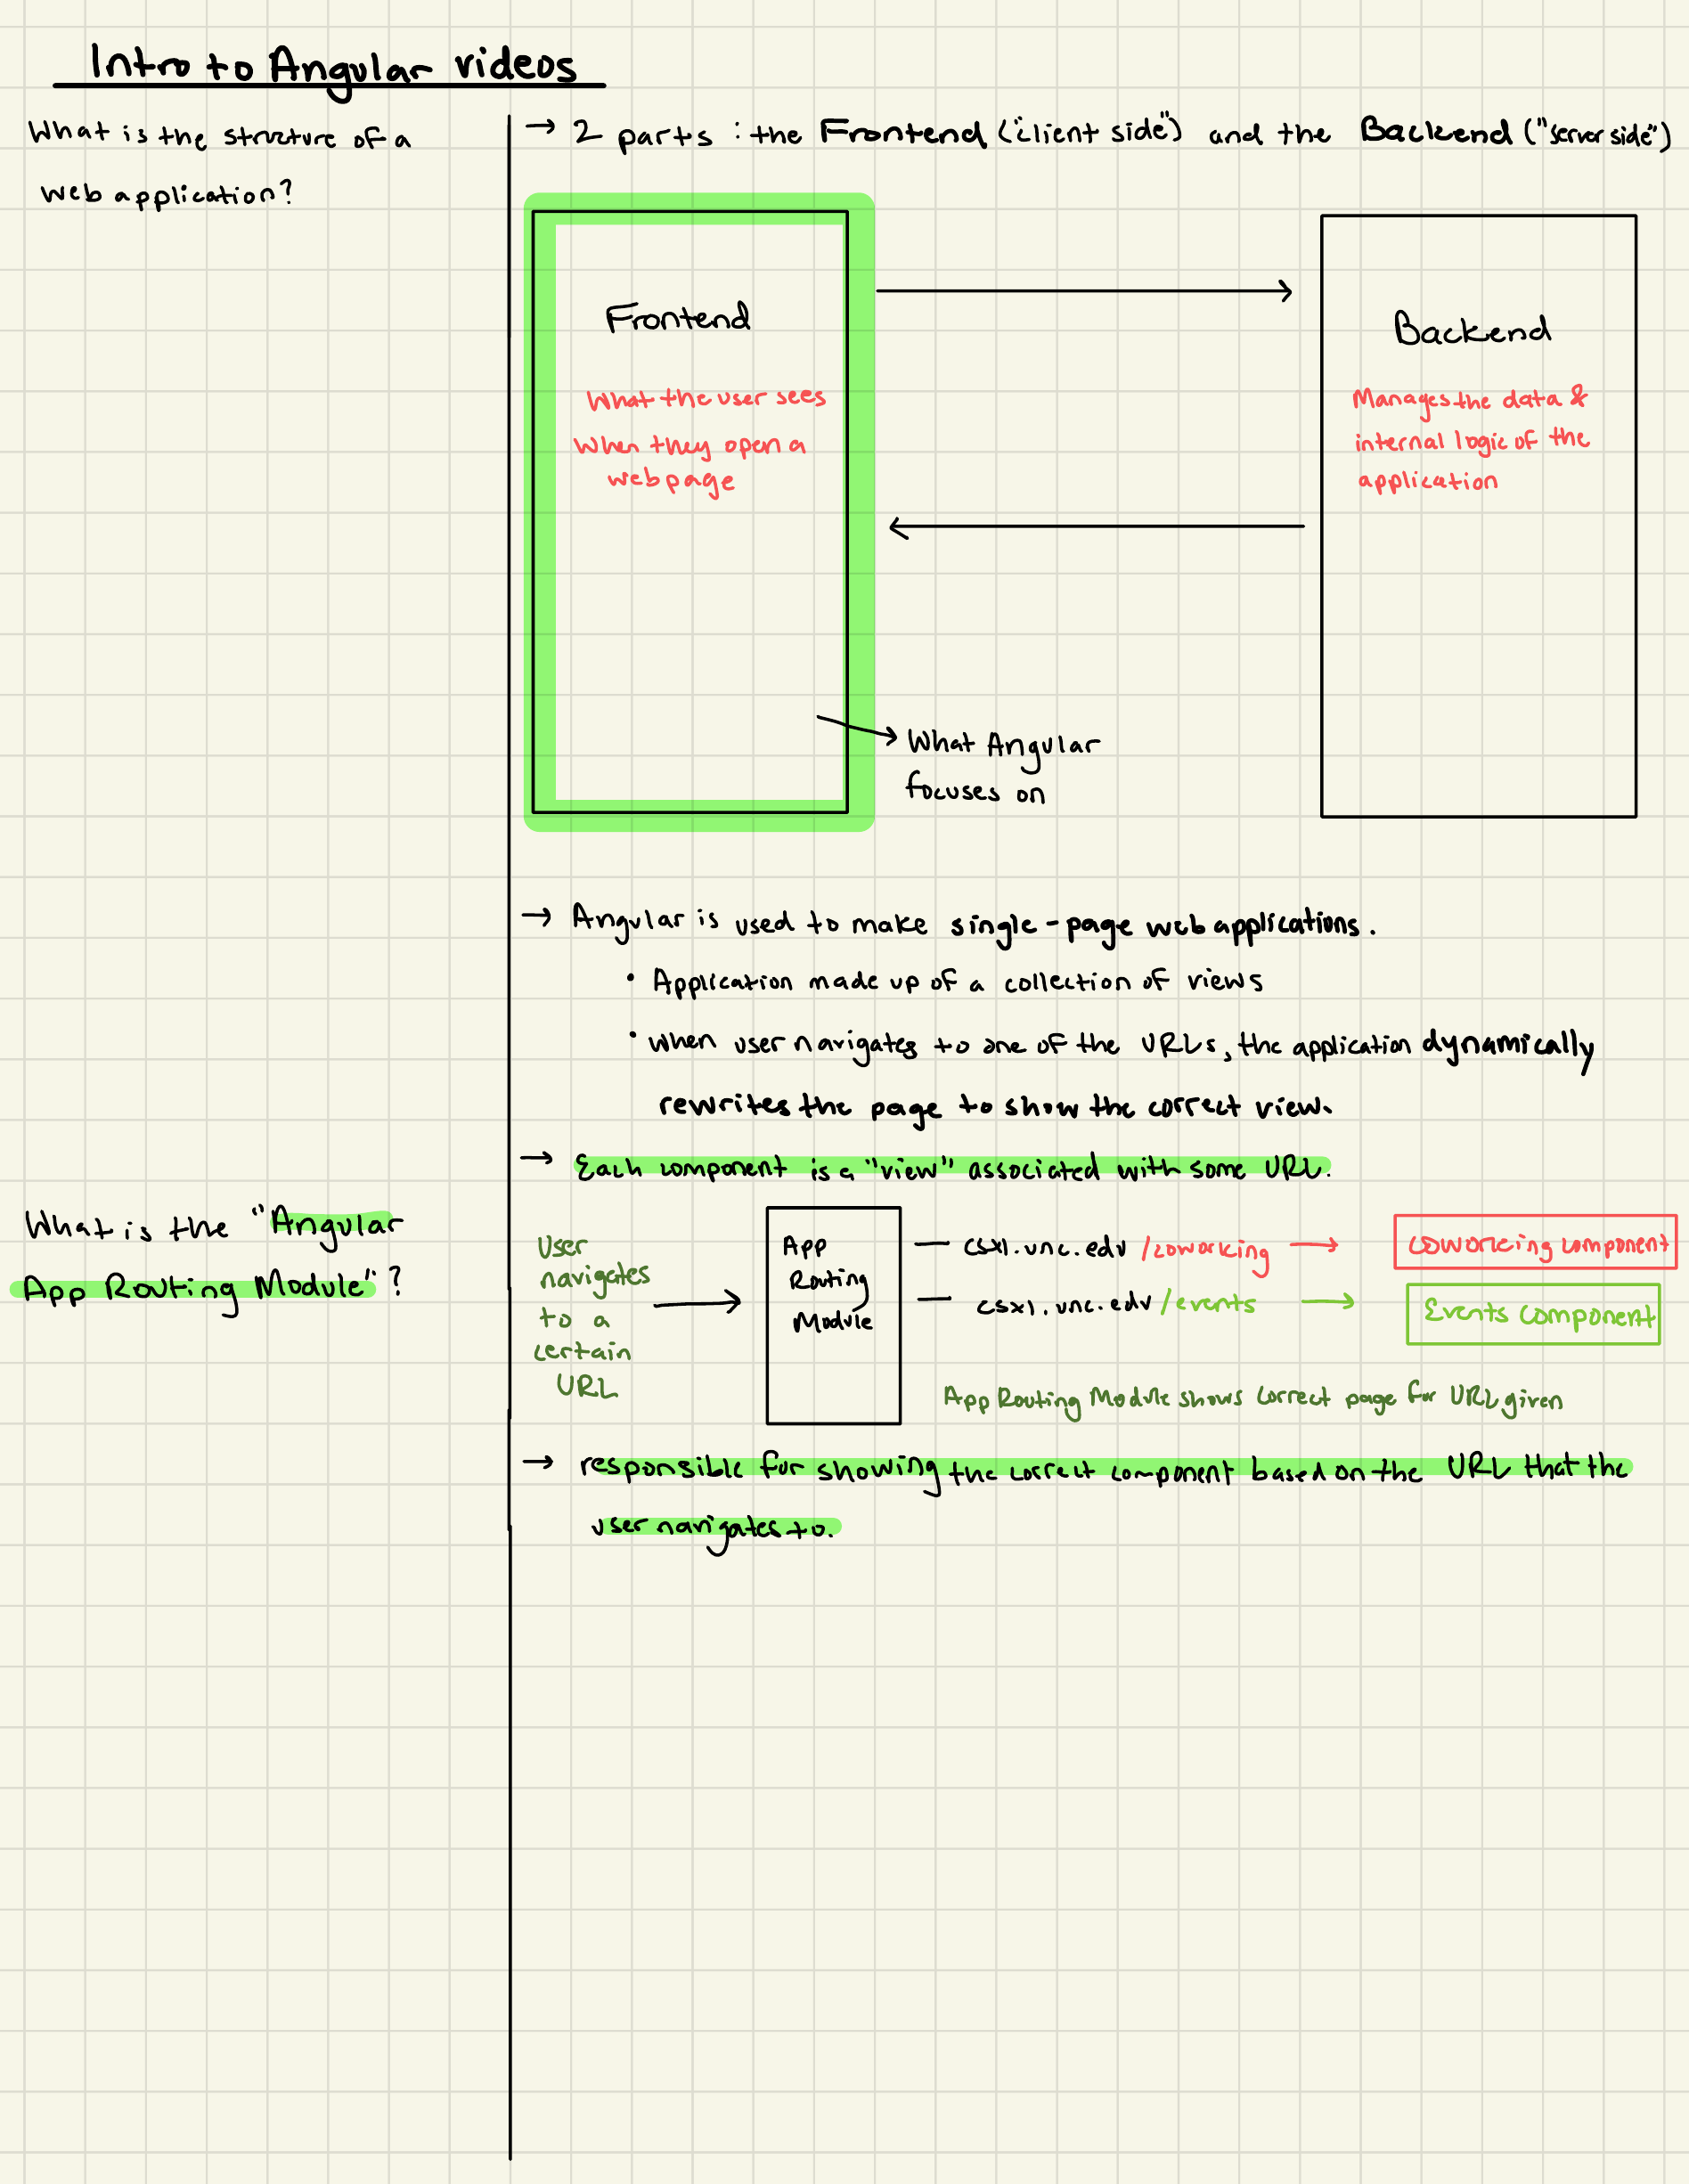 Intro to Angular videos
What is the structure of a
web application?
→ 2 parts : the Frontend ("client side") and the Backend ("server side")
Frontend
What the user sees
when they open a
webpage
Backend
Manages the data &
internal logic of the
application
What Angular
focuses on
→ Angular is used to make single-page web applications.
• Application made up of a collection of views
• when user navigates to one of the URLs, the application dynamically
rewrites the page to show the correct view.
→ Each component is a "view" associated with some URL.
What is the "Angular
App Routing Module"?
User
navigates
to a
certain
URL
App
Routing
Module
— csxl.unc.edu /coworking → coworking component
— csxl.unc.edu /events → Events component
App Routing Module shows correct page for URL given
→ responsible for showing the correct component based on the URL that the
user navigates to.